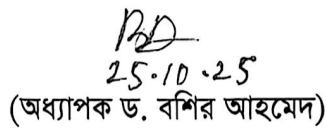 25.10.25
(অধ্যাপক ড. বশির আহমেদ)